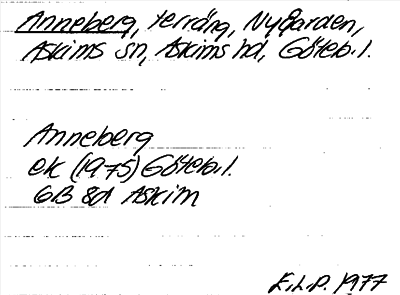 Anneberg, terräng, Nygården,
Askims sn, Askims hd, Göteb.l.
Anneberg
ek (1975) Göteb.l.
6B 8d Askim
E.L.P. 1977